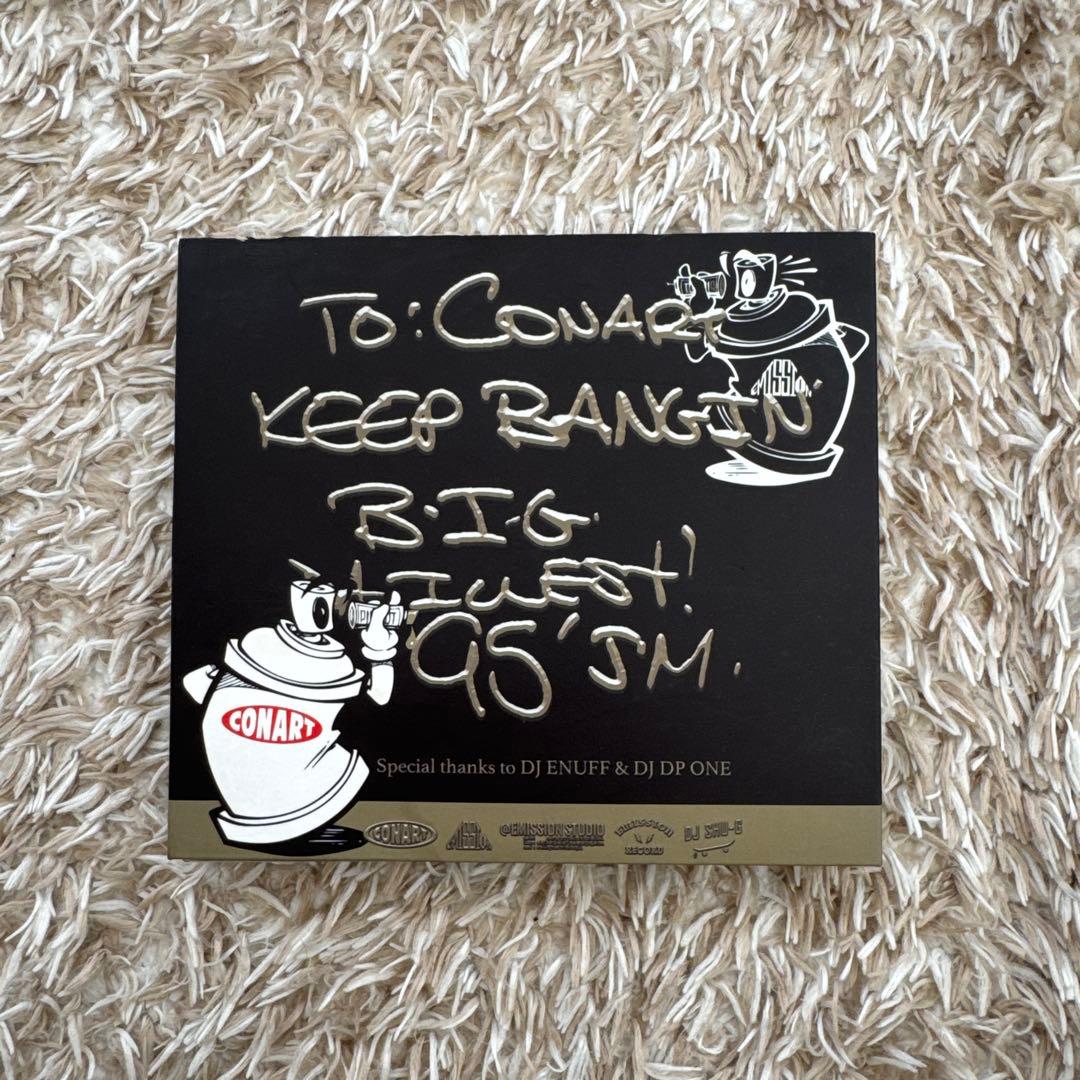 TO: CONART
KEEP BANGIN'
B.I.G.
ILLEST!
95' JM.
EMISSION
CONART
Special thanks to DJ ENUFF & DJ DP ONE
CONART
EMISSION
@EMISSION STUDIO
EMISSION RECORD
DJ SHU-G